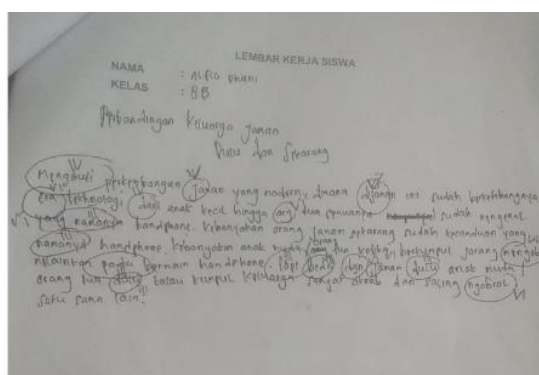 LEMBAR KERJA SISWA
NAMA : Alfio Dhani
KELAS : 8B
Perbandingan Keluarga Jaman
Dulu dan Sekarang
Mengikuti perkembangan Jaman yang modern, dimana Djaman ini sudah berkembangnya
Era teknologi, dari anak kecil hingga org tua semuanya sudah mengenal
yang namanya handphone. Kebanyakan orang Jaman sekarang sudah kecanduan yang
namanya handphone. Kebanyakan anak muda, tua ketika berkumpul jarang
melainkan bermain handphone. Tapi beda dgn Jaman dulu anak muda
orang tua kalau kumpul keluarga sangat akrab dan saling ngobrol
satu sama lain.